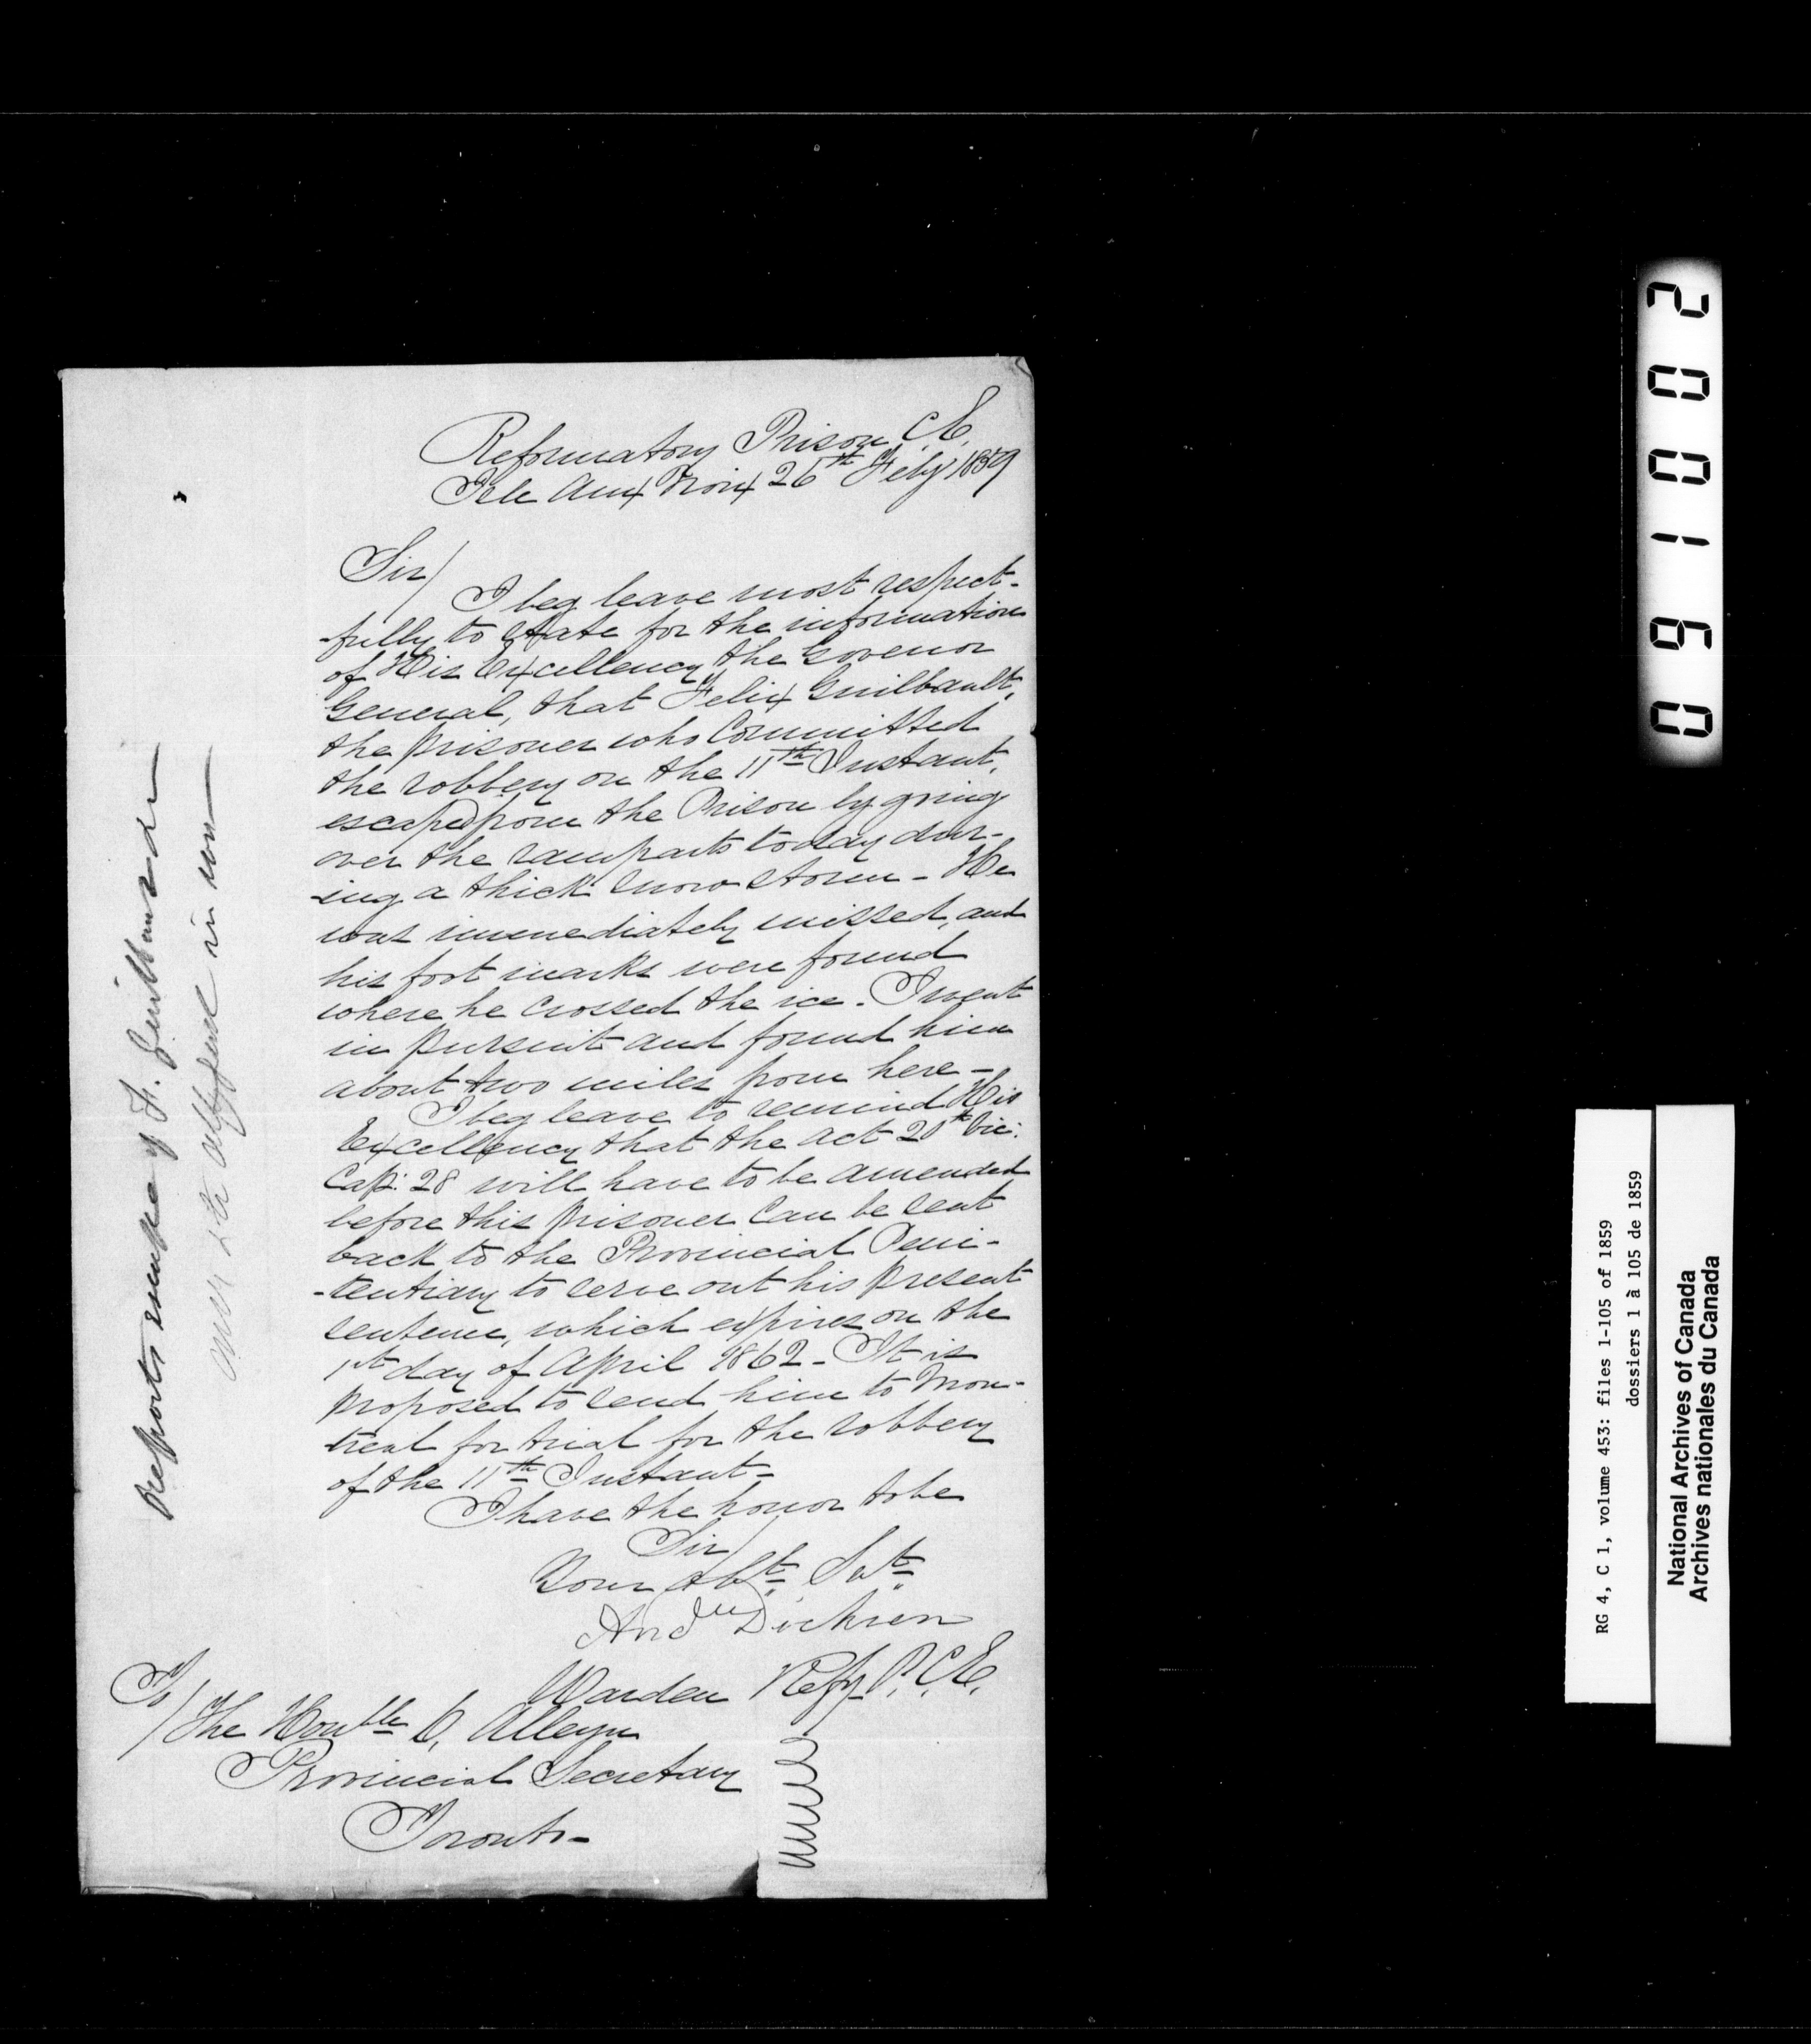 Reformatory Prison, C.E.
Isle Aux Noix 26th Feby 1859
Sir/
I beg leave most respect-
-fully to state for the information
of His Excellency the Govenor
General, that Felix Guilbault,
the prisoner who Committed
the robbery on the 11th Instant,
escaped from the Prison by going
over the ramparts today dur-
-ing a thick snow storm - He
was immediately missed, and
his foot marks were found
where he crossed the ice. I went
in pursuit and found him
about two miles from here -
I beg leave to remind His
Excellency that the Act 20th Vic:
Cap: 28 will have to be amended
before this prisoner can be sent
back to the Provincial Peni-
-tentiary to serve out his present
sentence, which expires on the
1st day of April 1862 - It is
proposed to send him to Mon-
treal for trial for the robbery
of the 11th Instant -
I have the honor to be
Sir/
Your Obt. Svt.
Andw Dickson
Warden Refy P. C.E.
To/
The Honble C. Alleyn
Provincial Secretary
Toronto -
Reports escape of F. Guilbault
RG 4, C 1, volume 453: files 1-105 of 1859
dossiers 1 à 105 de 1859
National Archives of Canada
Archives nationales du Canada
091002